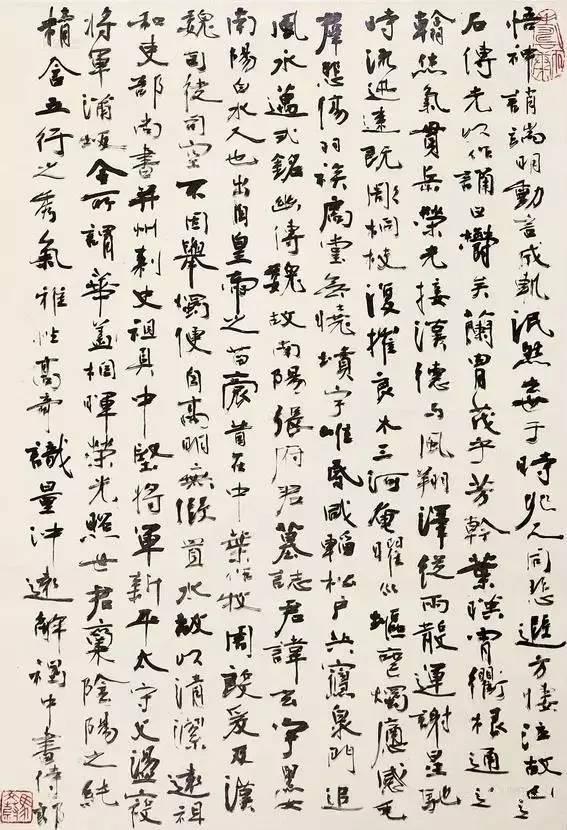 悟神誚端明動言成軌泯然去世于時兆人同悲遐方悽泣故刊
石傳光以作誦曰鬱矣蘭冑茂乎芳幹葉映霄衢根通海
翰休氣貫岳榮光接漢德与風翔澤從雨散運謝星馳
時流迅速既彫桐枝復摧良木三河奄曜川塸噎燭痛感毛
羣悲傷羽族扃堂無曉墳宇唯昏咸韜松戶共寢泉門追
風永邁式銘幽傳魏故南陽張府君墓誌君諱玄字黑女
南陽白水人也出自皇帝之苗裔昔在中葉作牧周殷爰及漢
魏司徒司空不因舉燭便自高明無假置水故以清潔遠祖
和吏部尚書并州刺史祖具中堅將軍新平太守父盪寇
將軍蒲坂令所謂華蓋相暉榮光照世君稟陰陽之純
精含五行之秀氣雅性高奇識量沖遠解褐中書侍郎